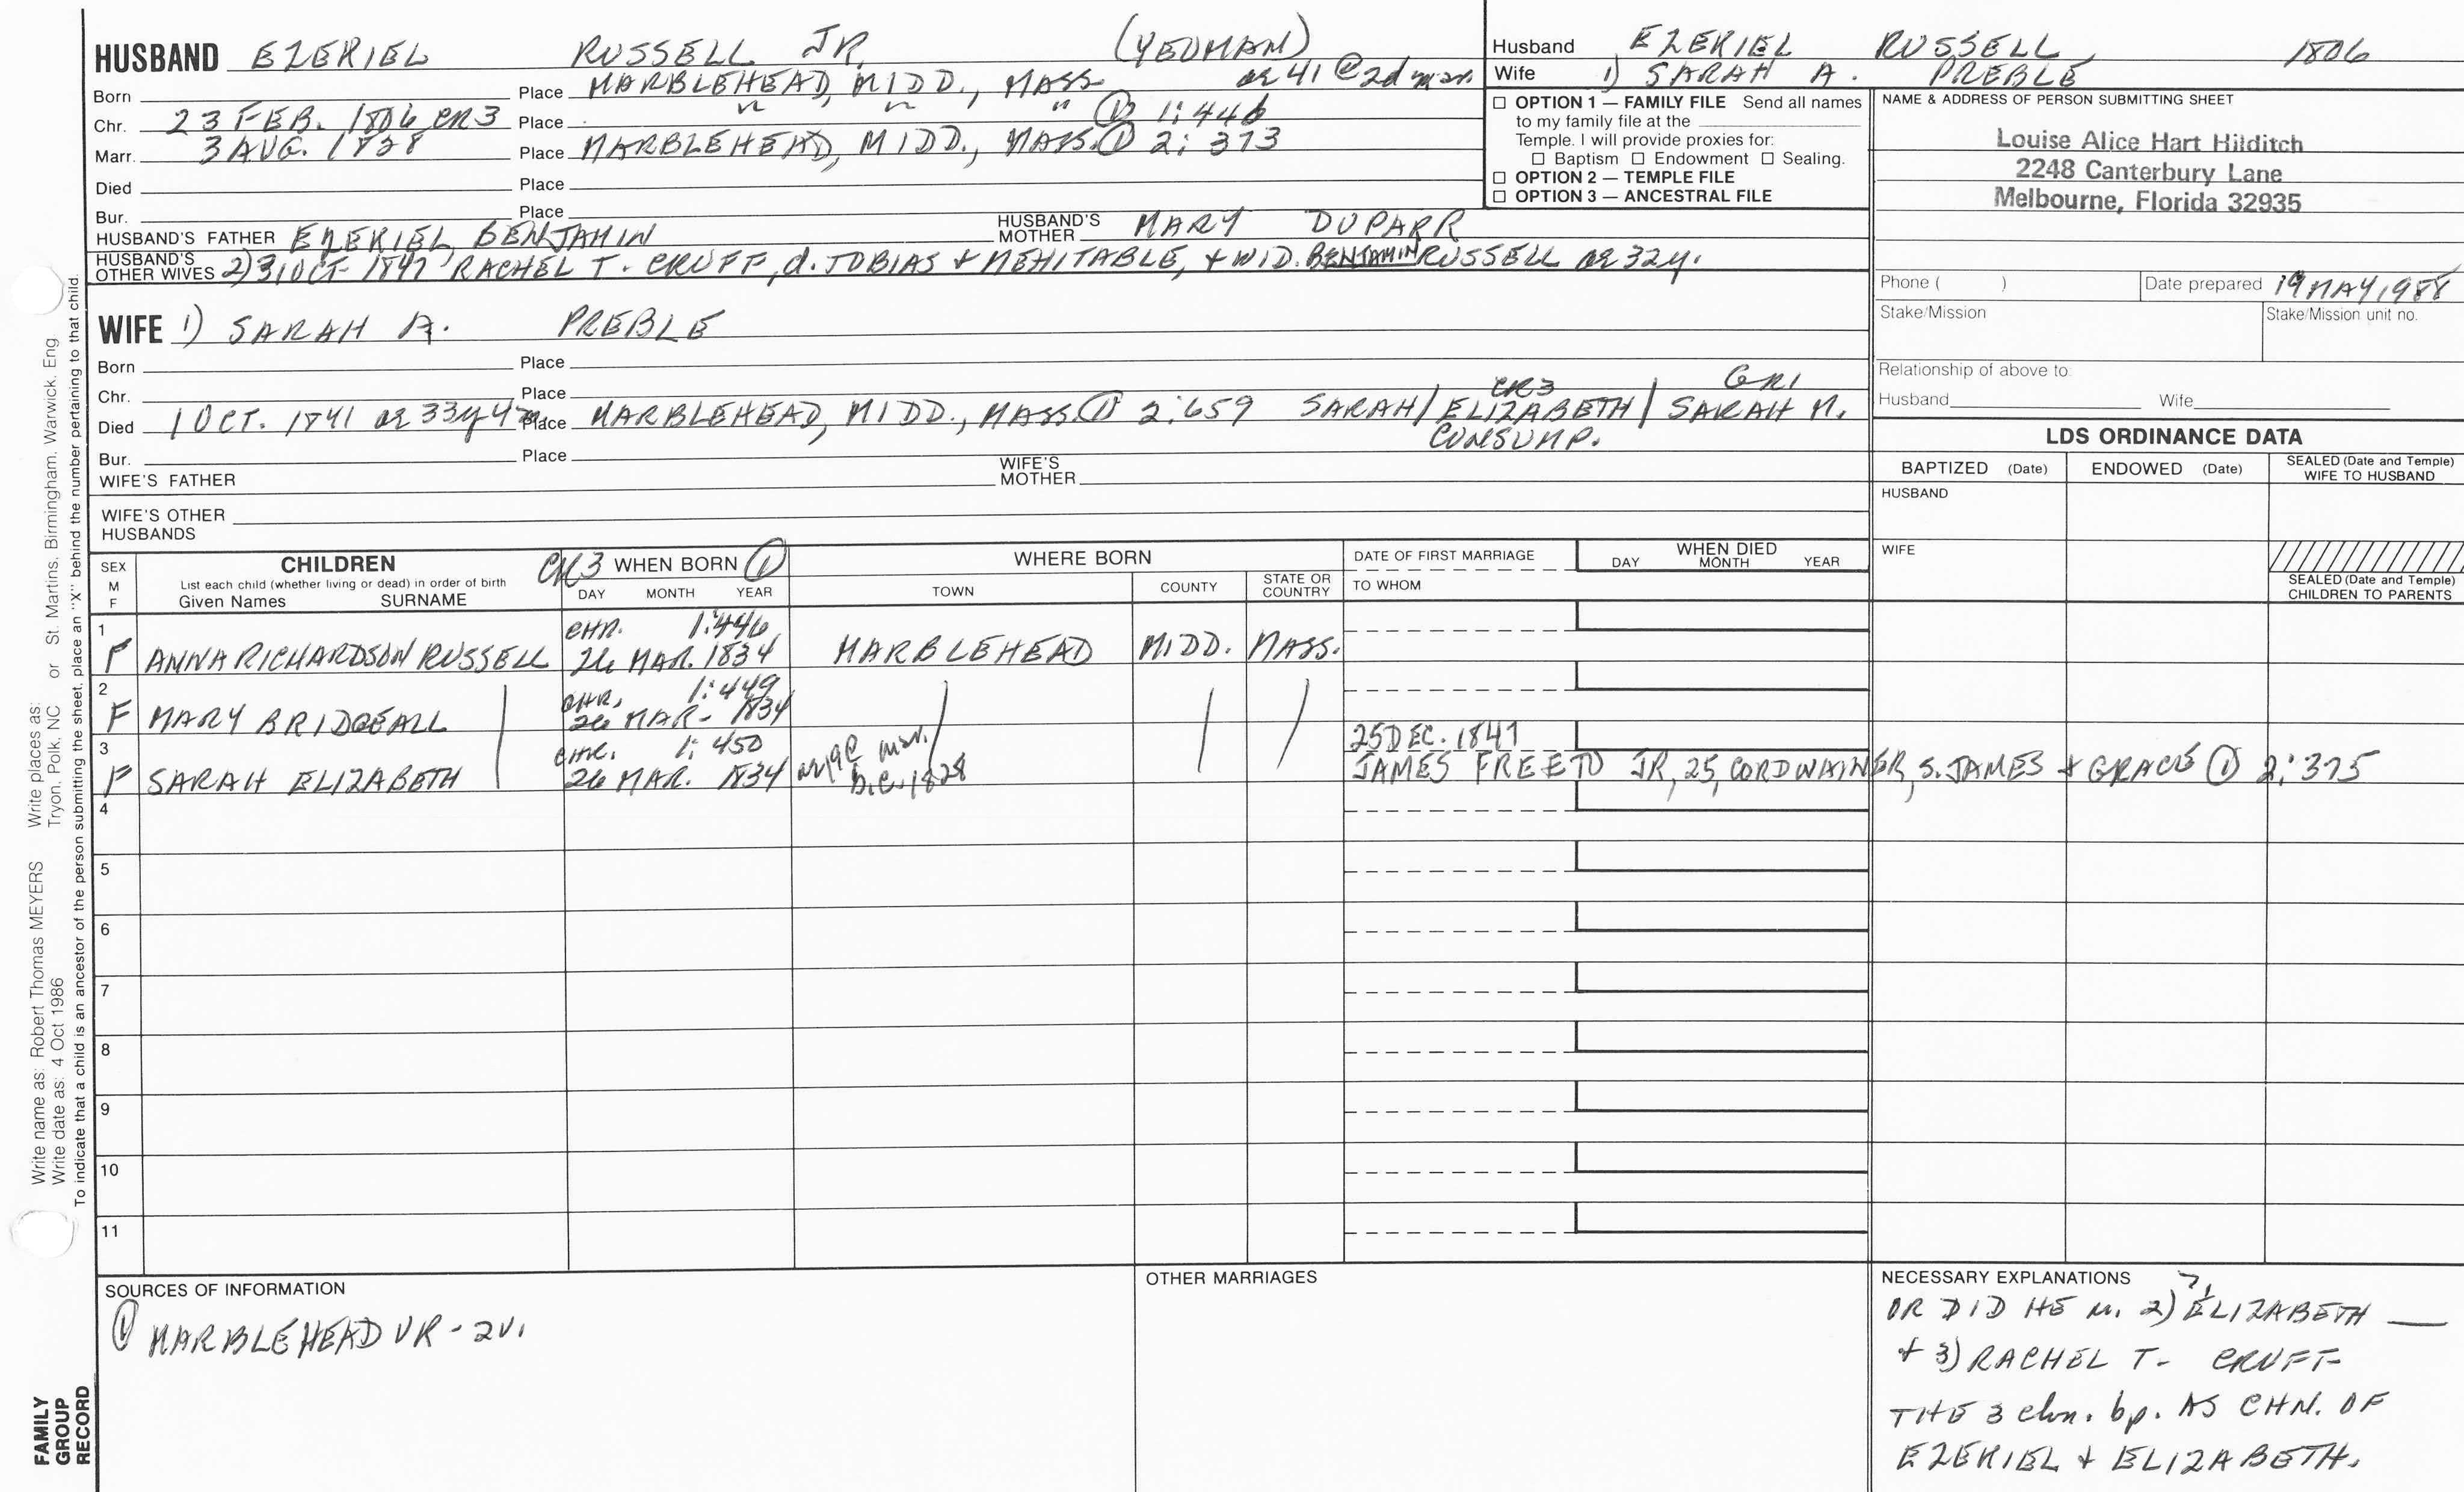 HUSBAND EZEKIEL RUSSELL JR. (YEOMAN)
Born Place MARBLEHEAD, MIDD., MASS ae 41 @ 2d mar.
Chr. 23 FEB. 1806 CR3 Place " " " ① 1:446
Marr. 3 AUG. 1828 Place MARBLEHEAD, MIDD., MASS. ① 2:373
Died Place
Bur. Place
HUSBAND'S FATHER EZEKIEL BENJAMIN HUSBAND'S MOTHER MARY DUPARR
HUSBAND'S OTHER WIVES 2) 31 OCT 1847 RACHEL T. CRUFF, d. TOBIAS & MEHITABLE, & WID. BENJAMIN RUSSELL ae 32y.
Husband EZEKIEL RUSSELL 1806
Wife 1) SARAH A. PREBLE
☐ OPTION 1 — FAMILY FILE Send all names
to my family file at the
Temple. I will provide proxies for:
☐ Baptism ☐ Endowment ☐ Sealing.
☐ OPTION 2 — TEMPLE FILE
☐ OPTION 3 — ANCESTRAL FILE
NAME & ADDRESS OF PERSON SUBMITTING SHEET
Louise Alice Hart Hilditch
2248 Canterbury Lane
Melbourne, Florida 32935
Phone ( ) Date prepared 19 MAY 1988
Stake/Mission Stake/Mission unit no.
Relationship of above to:
Husband Wife
WIFE 1) SARAH A. PREBLE
Born Place
Chr. Place CR3 GR1
Died 1 OCT. 1841 ae 33y 4m Place MARBLEHEAD, MIDD., MASS. ① 2:659 SARAH / ELIZABETH / SARAH M.
CONSUMP.
Bur. Place
WIFE'S FATHER WIFE'S MOTHER
WIFE'S OTHER HUSBANDS
LDS ORDINANCE DATA
BAPTIZED (Date) ENDOWED (Date) SEALED (Date and Temple) WIFE TO HUSBAND
HUSBAND
WIFE
SEALED (Date and Temple) CHILDREN TO PARENTS
SEX M F
CHILDREN
List each child (whether living or dead) in order of birth
Given Names SURNAME
CR3 WHEN BORN ①
DAY MONTH YEAR
WHERE BORN
TOWN COUNTY STATE OR COUNTRY
DATE OF FIRST MARRIAGE
TO WHOM
WHEN DIED
DAY MONTH YEAR
1 CHR. 1:446
F ANNA RICHARDSON RUSSELL 26 MAR. 1834 MARBLEHEAD MIDD. MASS.
2 CHR. 1:449
F MARY BRIDGEALL 26 MAR. 1834
3 CHR. 1:450 25 DEC. 1847
F SARAH ELIZABETH 26 MAR. 1834 ae 19 @ mar. b.c. 1828 JAMES FREETO JR, 25, CORDWAINER, S. JAMES & GRACE ① 2:375
4
5
6
7
8
9
10
11
SOURCES OF INFORMATION
① MARBLEHEAD VR - 2V.
OTHER MARRIAGES
NECESSARY EXPLANATIONS
OR DID HE M. 2) ELIZABETH ___
& 3) RACHEL T. CRUFF
THE 3 chn. bp. AS CHN. OF
EZEKIEL & ELIZABETH.
Write name as: Robert Thomas MEYERS Write places as:
Write date as: 4 Oct 1986 Tryon, Polk, NC or St. Martins, Birmingham, Warwick, Eng.
To indicate that a child is an ancestor of the person submitting the sheet, place an "X" behind the number pertaining to that child.
FAMILY
GROUP
RECORD